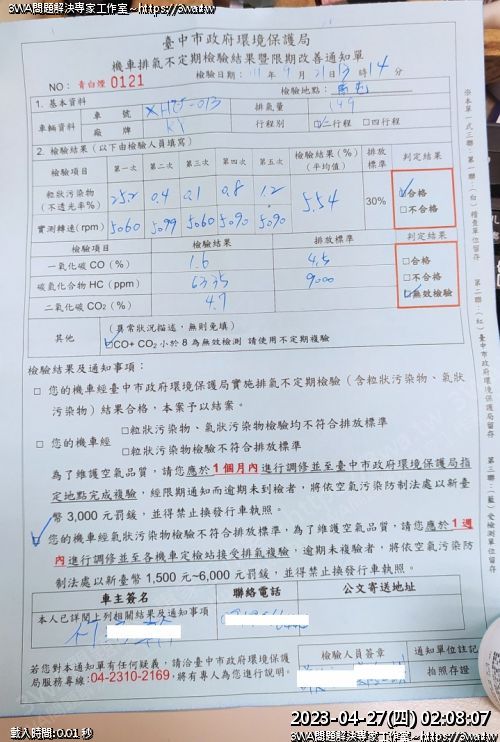 3WA問題解決專家工作室~https://3wa.tw
臺中市政府環境保護局
機車排氣不定期檢驗結果暨限期改善通知單
NO：青白煙 0121
檢驗日期：111年9月21日13時14分
檢驗地點：南屯
1. 基本資料
車輛資料 車號 排氣量 149
廠牌 KY 行程別 ☑二行程 □四行程
2. 檢驗結果（以下由檢驗人員填寫）
檢驗項目 第一次 第二次 第三次 第四次 第五次 檢驗結果(%)(平均值) 排放標準 判定結果
粒狀污染物(不透光率%) 25.2 0.4 0.1 0.8 1.2 5.54 30% ☑合格 □不合格
實測轉速(rpm) 5060 5099 5060 5090 5090
檢驗項目 檢驗結果 排放標準 判定結果
一氧化碳 CO（%） 1.6 4.5 □合格
碳氫化合物 HC（ppm） 6335 9000 □不合格
二氧化碳 CO₂（%） 4.7 ☑無效檢驗
其他 （異常狀況描述，無則免填）
☑CO+ CO₂ 小於 8 為無效檢測 請使用不定期複驗
檢驗結果及通知事項：
□ 您的機車經臺中市政府環境保護局實施排氣不定期檢驗（含粒狀污染物、氣狀
污染物）結果合格，本案予以結案。
□ 您的機車經 □粒狀污染物、氣狀污染物檢驗均不符合排放標準
□粒狀污染物檢驗不符合排放標準
為了維護空氣品質，請您應於1個月內進行調修並至臺中市政府環境保護局指
定地點完成複驗，經限期通知而逾期未到檢者，將依空氣污染防制法處以新臺
幣 3,000 元罰鍰，並得禁止換發行車執照。
☑ 您的機車經氣狀污染物檢驗不符合排放標準，為了維護空氣品質，請您應於1週
內進行調修並至各機車定檢站接受排氣複驗，逾期未複驗者，將依空氣污染防
制法處以新臺幣 1,500 元~6,000 元罰鍰，並得禁止換發行車執照。
車主簽名 聯絡電話 公文寄送地址
本人已詳閱上列相關結果及通知事項
若您對本通知單有任何疑義，請洽臺中市政府環境保護
局服務專線：04-2310-2169，將有專人為您進行說明。
檢驗人員簽章 通知單位註記
拍照存證
※本單一式三聯：第一聯：(白)稽查單位留存
第二聯：(紅)臺中市政府環境保護局留存
第三聯：(黃)受檢測單位留存
2023-04-27(四) 02:08:07
載入時間:0.01 秒
3WA問題解決專家工作室~https://3wa.tw